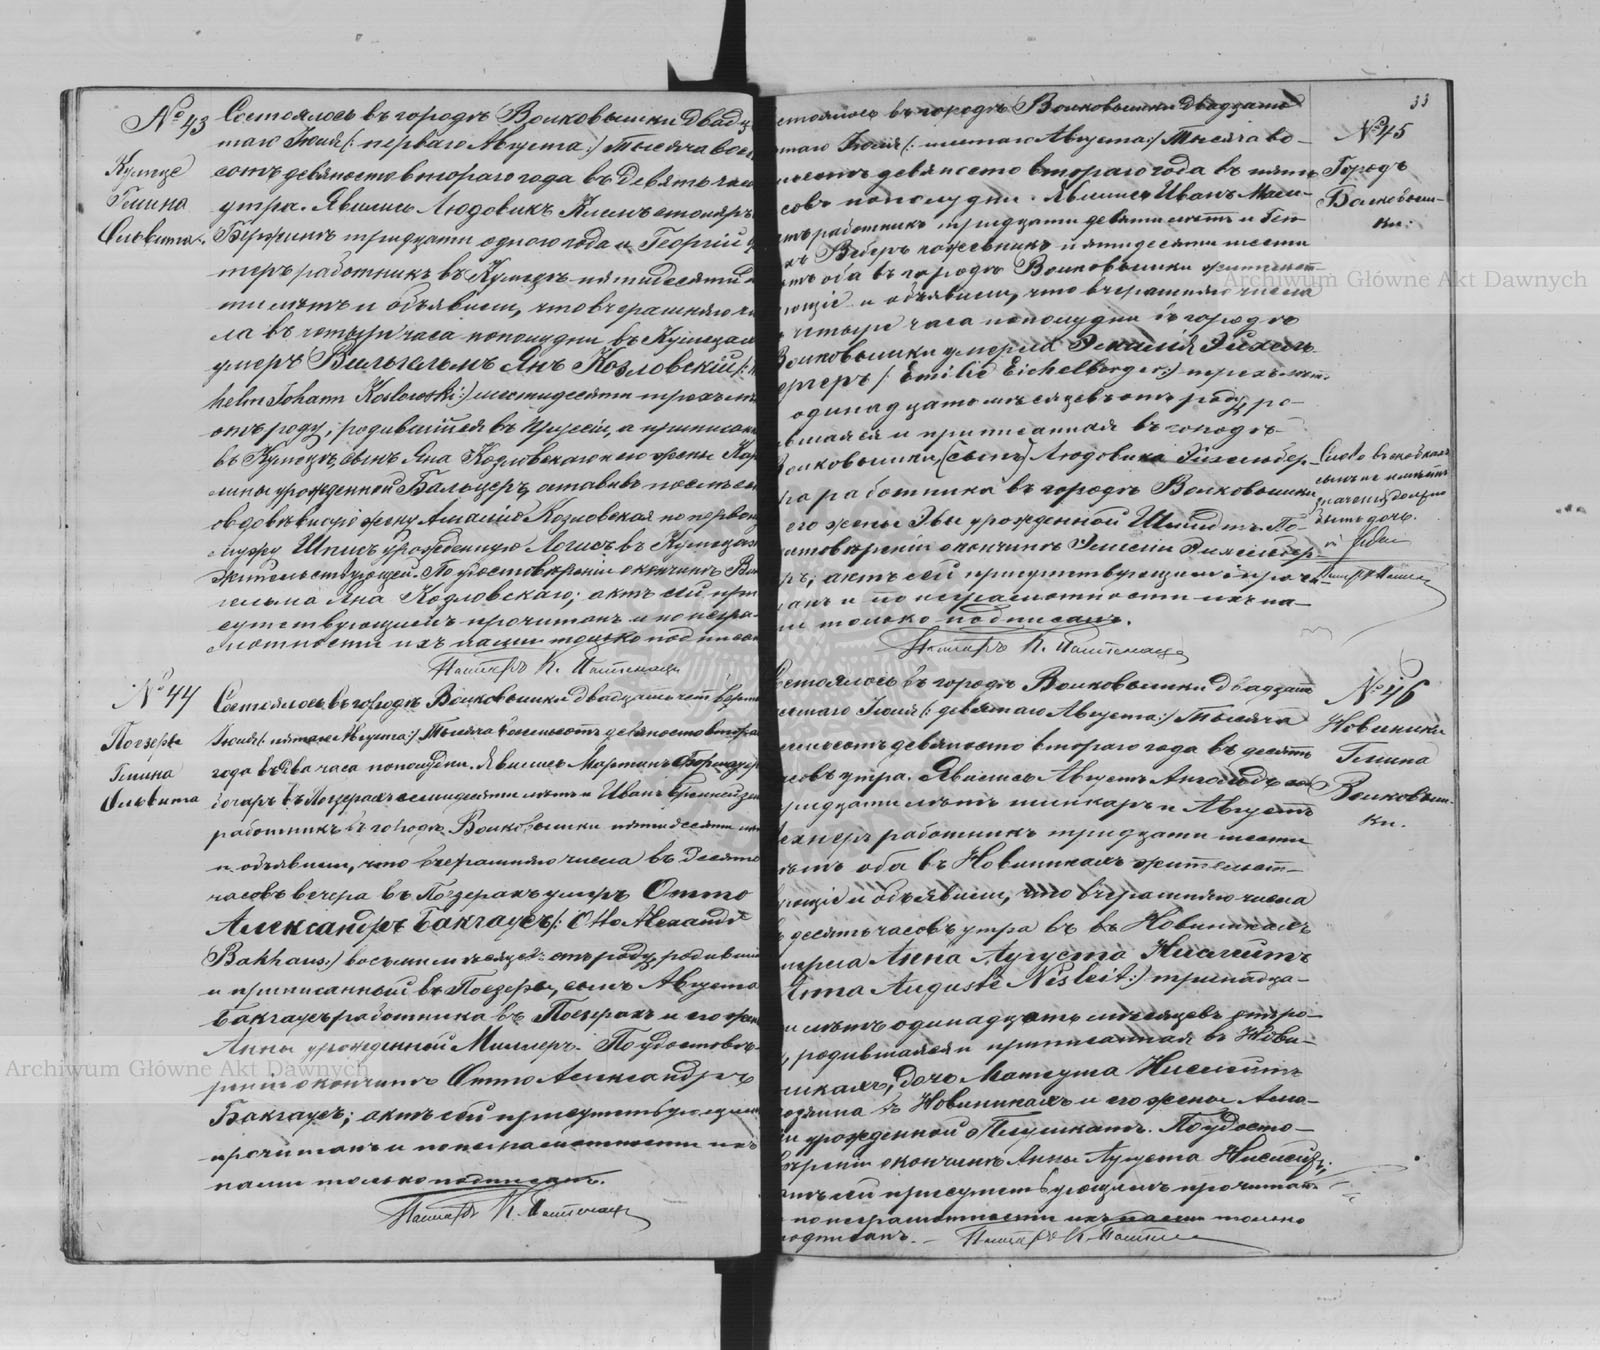 № 43
Кумеце
Гмина
Ольвита.
Состоялось въ городѣ Волковышки двадц
таго Іюля (: перваго Августа :) тысяча вос
сотъ девяносто втораго года въ девять час
утра. Явились Людовикъ Клемъ столяръ
тридцати одного года и Георгій
работникъ въ пятидесяти
лѣтъ и объявили, что вчерашняго чи
ла въ четыре часа пополудни въ
умеръ Вильгельмъ Янъ Козловскій (:
helm Johann Koslowski :) шестидесяти трехъ лѣ
отъ роду, родившійся въ Пруссіи, а приписан
въ сынъ Яна Козловскаго и его жены
урожденной Бальцеръ, оставивъ послѣ се
овдовѣвшую жену Амалію Козловская по перво
мужу урожденную въ
жительствующей. По удостовѣреніи о кончинѣ Ви
гельма Яна Козловскаго; актъ сей при
сутствующимъ прочитанъ и по негра
мотности ихъ нами только подписан
Пасторъ К.
№ 44
Поезеры
Гмина
Ольвита
Состоялось въ городѣ Волковышки двадцать четверт
Іюля (: пятаго Августа :) тысяча восемьсотъ девяносто втора
года въ два часа пополудни. Явились Мартинъ
въ Поезерахъ семидесяти лѣтъ и Иванъ
работникъ въ городѣ Волковышки пятидесяти
и объявили, что вчерашняго числа въ десять
часовъ вечера въ Поезерахъ умеръ Отто
Александръ Бакгаусъ (: Otto Alexandr
Bakhaus :) восьми мѣсяцевъ отъ роду, родивші
и приписанный въ Поезеры, сынъ Августа
Бакгаусъ работника въ Поезерахъ и его жен
Анны урожденной Миллеръ. По удостовѣ-
реніи о кончинѣ Отто Александръ
Бакгаусъ; актъ сей присутствующим
прочитанъ и по неграмотности ихъ
нами только подписанъ.
Пасторъ К.
33
№ 45
Городъ
Волковыш-
ки.
стоялось въ городѣ Волковышки двадцать
таго Іюля (: шестаго Августа :) тысяча во-
девяносто втораго года въ пять
совъ пополудни. Явились Иванъ
работникъ тридцати девяти лѣтъ и
Веберъ пятидесяти шести
оба въ городѣ Волковышки жительст-
ующіе и объявили, что вчерашняго числа
четыре часа пополудни въ городѣ
Волковышки умерла Эмилія Эйхель-
бергеръ (: Emilie Eichelberger :) трехъ лѣтъ
одинадцать мѣсяцевъ отъ роду, ро-
дившаяся и приписанная въ городѣ
Волковышки, (сынъ) Людовика Эйхельбер-
гера работника въ городѣ Волковышки
его жены Эвы урожденной Шмидтъ. По
удостовѣреніи о кончинѣ Эмиліи Эйхельбер-
геръ; актъ сей присутствующимъ прочи-
танъ и по неграмотности ихъ на-
ми только подписанъ.
Пасторъ К.
Слово въ скобкахъ
сынъ не имѣетъ
значенія, должно
быть дочь.
Пасторъ
№ 46
Новиники
Гмина
Волковыш-
ки.
Состоялось въ городѣ Волковышки двадцать
шестаго Іюля (: девятаго Августа :) тысяча
восемьсотъ девяносто втораго года въ десять
часовъ утра. Явились Августъ
тридцати лѣтъ и Августъ
работникъ тридцати шести
лѣтъ оба въ Новиникахъ жительст-
вующіе и объявили, что вчерашняго числа
въ десять часовъ утра въ въ Новиникахъ
умерла Анна Аугуста Нислейтъ
Anna Auguste Nisleit :) тринадца-
ти лѣтъ одинадцать мѣсяцевъ отъ ро-
ду, родившаяся и приписанная въ Нови-
никахъ, дочь Матеуша Нислейтъ
въ Новиникахъ и его жены Ама-
ліи урожденной По удосто-
вѣреніи о кончинѣ Анны Аугуста Нислейтъ;
актъ сей присутствующимъ прочитанъ
по неграмотности ихъ нами только
подписанъ. Пасторъ К.
Archiwum Główne Akt Dawnych
Archiwum Główne Akt Dawnych